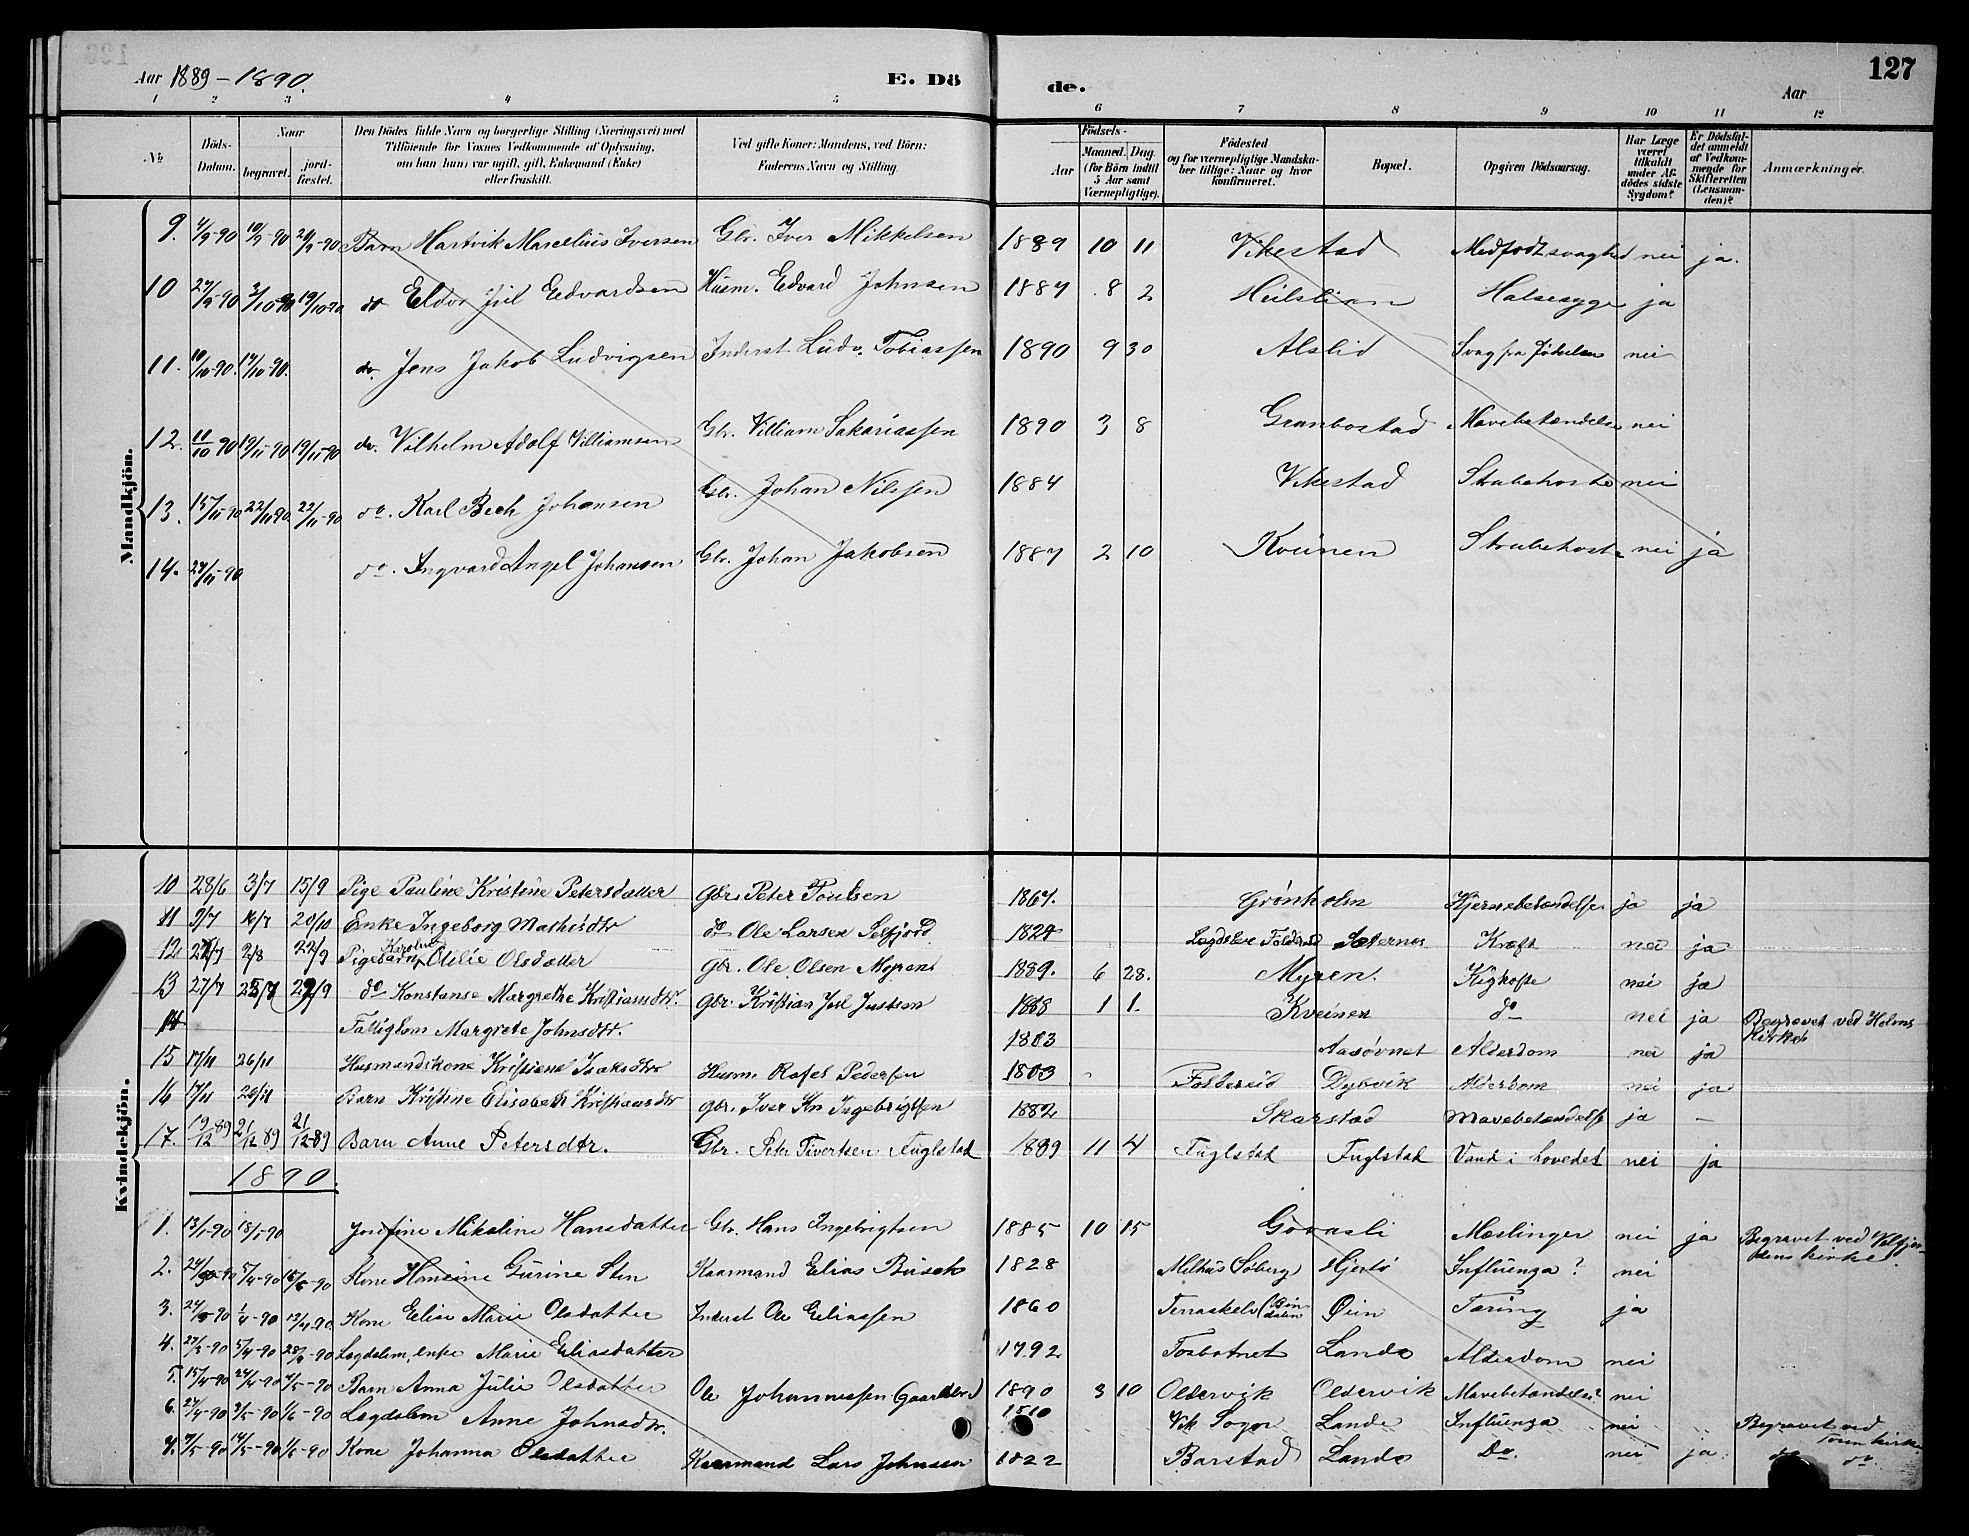 Aar 1889-1890.
E. Dö
de.
Aar
127
1 2 3 4 5 6 7 8 9 10 11 12
No.
Döds-Datum.
Naar
begravet.
jord-fæstet.
Den Dödes fulde Navn og borgerlige Stilling (Næringsvei) med
Tilföiende for Voxnes Vedkommende af Oplysning,
om han (hun) var ugift, gift, Enkemand (Enke)
eller fraskilt.
Ved gifte Koner: Mandens, ved Börn:
Faderens Navn og Stilling.
Födsels-
Aar
Maaned. Dag.
(for Börn indtil
5 Aar samt
Værnepligtige).
Födested
og for værnepligtige Mandska-
ber tillige: Naar og hvor
konfirmeret.
Bopæl.
Opgiven Dödsaarsag.
Har Læge
været
tilkaldt
under Af-
dödes sidste
Sygdom?
Er Dödsfal-
det anmeldt
af Vedkom-
mende for
Skifteretten
(Lensman-
den)?
Anmærkninger.
Mandkjön.
9. 4/9-90 Barn Hartvik Marcelius Iversen Gbr. Iver Mikkelsen 1889 10 11 Vikestad Medfødt svaghed nei ja.
10 27/9-90 3/10-90 19/10-90. do Eldor Jul Edvardsen Husm. Edvard Johnsen 1887 8 2 Heilslian Halsesyge ja
11. 10/10-90. 17/10-90. do. Jens Jakob Ludvigsen Inderst Ludv. Tobiassen 1890 9 30 Alslid Svag fra Fødselen nei
12. 11/10 90 19/11-90 19/11-90 do. Vilhelm Adolf Villiamsen Gbr. Villiam Sakariassen 1890 3 8 Granbostad Mavebetændelse nei
13. 15/11-90 22/11 90. 22/11-90 do. Karl Bech Johansen Gbr. Johan Nilssen 1884 Vikestad Strubehoste nei
14. 27/11-90 do. Ingvard Angel Johansen Gbr. Johan Jakobsen 1887 2 10 Kveinen Strubehoste nei ja
Kvindekjön.
10 28/6 3/7 15/9 Pige Pauline Kristine Petersdatter Gbr. Peter Poulsen 1867. Grønholm Hjernebetændelse ja ja
11 9/7 16/7 20/10 Enke Ingeborg Mathisdtr do Ole Larsen Selfjord 1824 Foldereid Sæternes Kræft nei ja
12 2/8 22/9 Pigebarn Karoline Otilie Olsdatter Gbr. Ole Olsen Myran 1889. 6 28. Myren. Kighoste nei ja
13 27/7 29/9 do Konstanse Margrethe Kristiansdtr. Gbr. Kristian Jul Justsen 1888 1 1. Kveinen do nei ja
14 Fattiglem Margrete Johnsdtr. 1803 Aasøvnet Alderdom nei ja Begravet ved Holms Kirke
15 17/11 26/11 Husmandskone Kristiane Isaksdtr Husm. Rafel Pedersen 1803 Foldereid Dybvik Alderdom nei ja
16 17/11 26/11 Barn Kristine Elisabeth Kristiansdtr Gbr. Iver Kr. Ingebrigtsen 1882 Skarstad Mavebetændelse ja —
17. 19/12 89 21/12 89 21/12-89 Barn Anne Petersdtr. Gbr. Peter Sivertsen Fuglstad 1889 11 4 Fuglstad Fuglstad Vand i hovedet nei ja
1890.
1. 13/1-90 18/1-90 Josefine Mikaline Hansdatter Gbr. Hans Ingebrigtsen 1885 10 15 Gaasli Meslinger nei ja Begravet ved Velfjordens kirke.
2. 5/4-90 Kone Hansine Gurine Sten Kaarmand Elias Busch 1828 Melhus Søberg Hjortø Influenza? nei
3. 1/4-90 Kone Elise Marie Olsdatter Inderst Ole Eliassen 1860 Terraskelv (Bindalen Øien Tæring ja
4. 27/3-90 5/4-90 Lægdslem, enke Marie Eliasdatter 1792 Fosbotnet Lande Alderdom nei
5. 15/4-90 24/4-90 Barn Anna Julie Olsdatter Ole Johannessen (Gaardbr.) 1890 3 10 Oldervik Oldervik Mavebetændelse? nei
6. 27/4-90 3/5-90 1/6-90 Lægdslem Anne Johnsdtr. 1810 Vik Sogn Lande Influenza nei Begravet ved kirke
7. 7/5-90 14/5-90 1/6-90 Kone Johanna Olsdatter Kaarmand Lars Johnsen 1822 Barstad Lande Do. nei ja do do